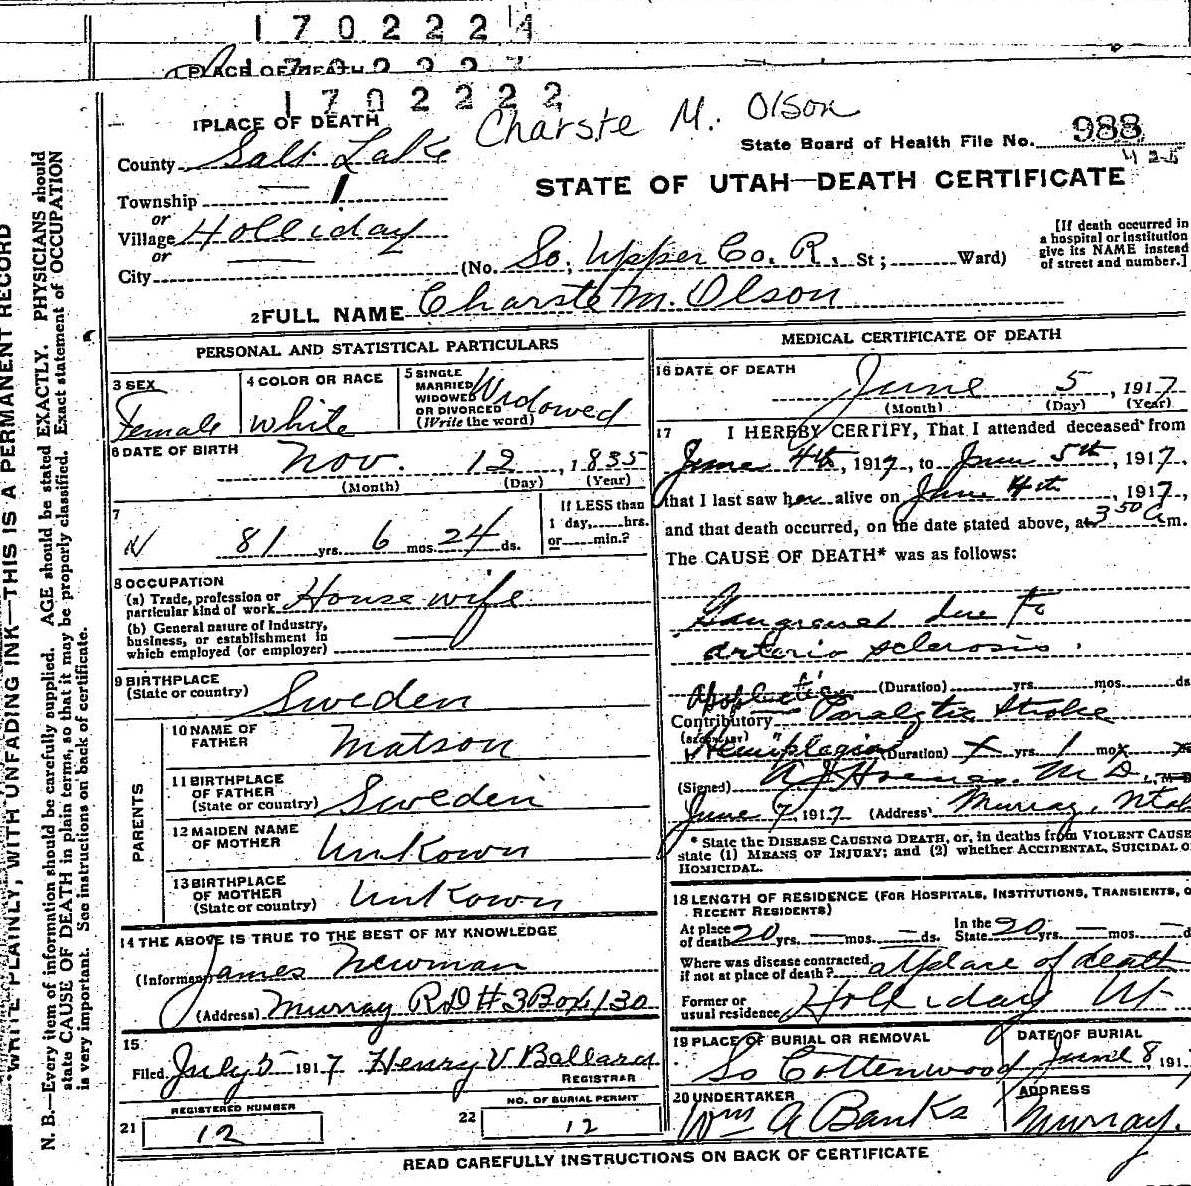 170222
PLACE OF DEATH
1702222
Charste M. Olson
1 PLACE OF DEATH
State Board of Health File No. 988
425
County Salt Lake
STATE OF UTAH—DEATH CERTIFICATE
Township
or
Village Holliday
or
City (No. So. Upper Co. R. St; Ward)
[If death occurred in
a hospital or institution
give its NAME instead
of street and number.]
2 FULL NAME Charste M. Olson
PERSONAL AND STATISTICAL PARTICULARS
3 SEX
Female
4 COLOR OR RACE
White
5 SINGLE
MARRIED
WIDOWED
OR DIVORCED
(Write the word)
Widowed
6 DATE OF BIRTH
Nov. 12, 1835
(Month) (Day) (Year)
7
81 yrs. 6 mos. 24 ds.
If LESS than
1 day, hrs.
or min.?
8 OCCUPATION
(a) Trade, profession or
particular kind of work House wife
(b) General nature of Industry,
business, or establishment in
which employed (or employer)
9 BIRTHPLACE
(State or country) Sweden
PARENTS
10 NAME OF
FATHER Matson
11 BIRTHPLACE
OF FATHER
(State or country) Sweden
12 MAIDEN NAME
OF MOTHER Unkown
13 BIRTHPLACE
OF MOTHER
(State or country) Unkown
14 THE ABOVE IS TRUE TO THE BEST OF MY KNOWLEDGE
(Informant James Newman
(Address) Murray RD #3 Box 130
15
Filed July 5 1917 Henry V Ballard
REGISTRAR
REGISTERED NUMBER
21 12
NO. OF BURIAL PERMIT
22 12
MEDICAL CERTIFICATE OF DEATH
16 DATE OF DEATH
June 5, 1917
(Month) (Day) (Year)
17 I HEREBY CERTIFY, That I attended deceased from
June 4th, 1917, to June 5th, 1917,
that I last saw her alive on June 4th, 1917,
and that death occurred, on the date stated above, at 3 50 a m.
The CAUSE OF DEATH* was as follows:
due to
arterio sclerosis.
(Duration) yrs. mos. ds
Contributory Paralytic Stroke
(Duration) x yrs. 1 mos. x
(Signed) M.D.
June 7, 1917 (Address) Murray, Utah
* State the DISEASE CAUSING DEATH, or, in deaths from VIOLENT CAUSE
state (1) MEANS OF INJURY; and (2) whether ACCIDENTAL, SUICIDAL O
HOMICIDAL.
18 LENGTH OF RESIDENCE (FOR HOSPITALS, INSTITUTIONS, TRANSIENTS, O
RECENT RESIDENTS)
At place
of death 20 yrs. — mos. — ds. In the
State 20 yrs. — mos. — d
Where was disease contracted,
if not at place of death? at place of death
Former or
usual residence Holliday Ut
19 PLACE OF BURIAL OR REMOVAL
So Cottenwood
DATE OF BURIAL
June 8, 191
20 UNDERTAKER
Wm A Banks
ADDRESS
Murray.
READ CAREFULLY INSTRUCTIONS ON BACK OF CERTIFICATE
WRITE PLAINLY, WITH UNFADING INK—THIS IS A PERMANENT RECORD
N. B.—Every item of information should be carefully supplied. AGE should be stated EXACTLY. PHYSICIANS should
state CAUSE OF DEATH in plain terms, so that it may be properly classified. Exact statement of OCCUPATION
is very important. See instructions on back of certificate.